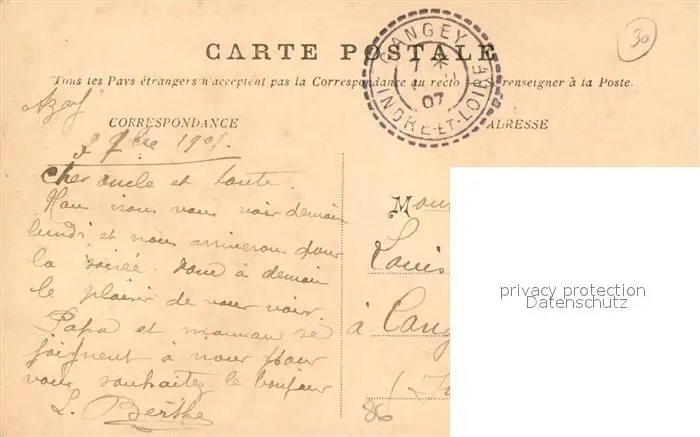 CARTE POSTALE
Tous les Pays étrangers n'acceptent pas la Correspondance au recto Se renseigner à la Poste.
CANGEY
07
INDRE-ET-LOIRE
30
CORRESPONDANCE
ADRESSE
9bre 1907.
Cher oncle et tante.
Nous irons vous voir demain
lundi, et nous arriverons pour
la soirée. Donc à demain
le plaisir de vous voir.
Papa et maman se
joignent à nous pour
vous souhaitez le bonjour
L. Berthe
Mons
Louis
à Cang
(In
86
privacy protection
Datenschutz